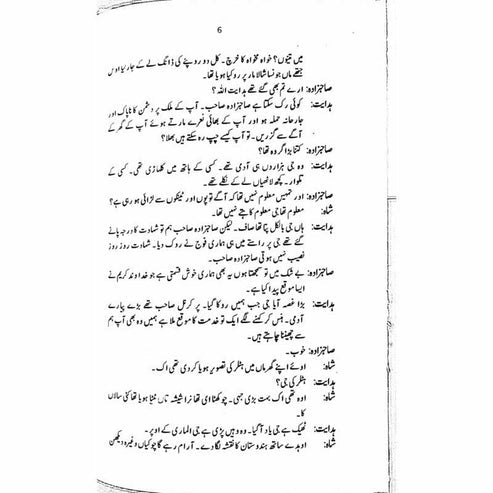 6
میں تینوں؟ خواہ مخواہ کا خرچ۔ کل دو روپے کی ڈانگ لے کے جار نیا اوس
جتھے ماں جونسا شالا مار پر رہ کیا ہویا تھا۔
صاحبزادہ: ارے تم بھی گئے تھے ہدایت اللہ؟
ہدایت: کوئی رک سکتا ہے صاحبزادہ صاحب۔ آپ کے ملک پر دشمن کا ناپاک اور
جارحانہ حملہ ہو اور آپ کے بھائی نعرے مارتے ہوئے آپ کے گھر کے
آگے سے گزریں۔ تو آپ کیسے چپ رہ سکتے ہیں بھلا؟
صاحبزادہ: کتنا بڑا گروہ تھا؟
ہدایت: وہ جی ہزاروں ہی آدمی تھے۔ کسی کے ہاتھ میں کلہاڑی تھی۔ کسی کے
تلوار۔ کچھ لاٹھیاں لے کے نکلے تھے۔
صاحبزادہ: اور تمہیں معلوم نہیں تھا کہ آگے توپوں اور ٹینکوں سے لڑائی ہو رہی ہے؟
شاہ: معلوم تھا جی معلوم کاہتے نہیں تھا۔
ہدایت: ہاں جی بالکل پتا تھا صاف۔ لیکن صاحبزادہ صاحب ہم تو شہادت کا درجہ پانے
گئے تھے جی پر راستے میں ہی ہماری فوج نے روک دیا۔ شہادت روز روز
نصیب نہیں ہوتی صاحبزادہ صاحب۔
صاحبزادہ: بے شک میں تو سمجھتا ہوں یہ بھی ہماری خوش قسمتی ہے جو خداوند کریم نے
ایسا موقع پیدا کیا ہے۔
ہدایت: بڑا غصہ آیا جی جب ہمیں روکا گیا۔ پر کرنل صاحب تھے بڑے پیارے
آدمی۔ ہنس کر کہنے لگے ایک تو خدمت کا موقع ملا ہے ہمیں وہ بھی آپ ہم
سے چھیننا چاہتے ہیں۔
صاحبزادہ: خوب۔
شاہ: اوئے اپنے گھر ماں میں ہٹلر کی تصویر ہویا کر دی تھی اک۔
ہدایت: ہٹلر کی جی؟
شاہ: اوہ تھی اک بہت بڑی جہی۔ چوکھٹا ای تھا نرا شیشہ تاں ٹٹا ہویا تھا کئی سالاں
کا۔
ہدایت: ٹھیک ہے جی یاد آ گیا۔ وہ وہیں پڑی ہے جی الماری کے اوپر۔
شاہ: اوہدے ساتھ ہندوستان کا نقشہ لگا دے۔ آرام رہے گا چوکیاں وغیرہ دیکھن